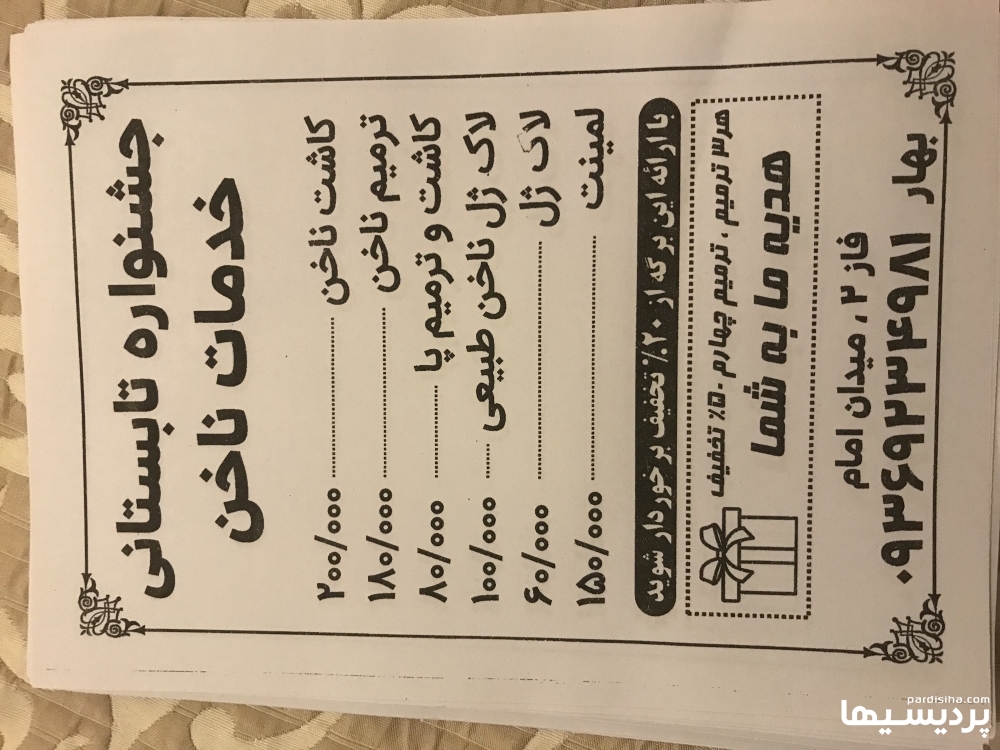 جشنواره تابستانی
خدمات ناخن
کاشت ناخن ........ ۲۰۰/۰۰۰
ترمیم ناخن ........ ۱۸۰/۰۰۰
کاشت و ترمیم پا ........ ۸۰/۰۰۰
لاک ژل ناخن طبیعی ........ ۱۰۰/۰۰۰
لاک ژل ........ ۶۰/۰۰۰
لمینت ........ ۱۵۰/۰۰۰
با ارائه این برگه از ۲۰٪ تخفیف برخوردار شوید
هر ۳ ترمیم ، ترمیم چهارم ۵۰٪ تخفیف
هدیه ما به شما
فاز ۲ ، میدان امام
۰۹۳۶۹۲۳۴۹۸۱ بهار
pardisiha.com
پردیسیها